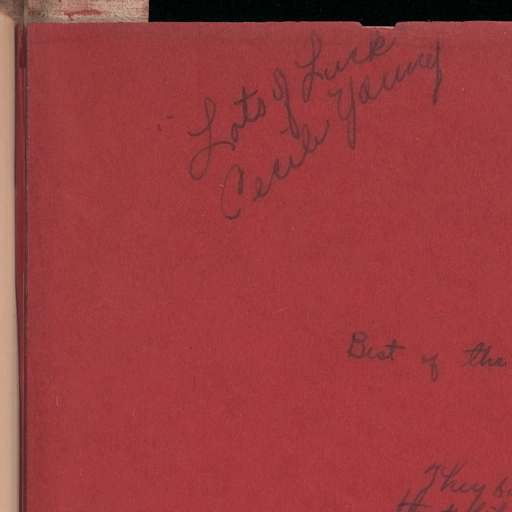 Lots of Luck
Cecile Young
Best of the
They